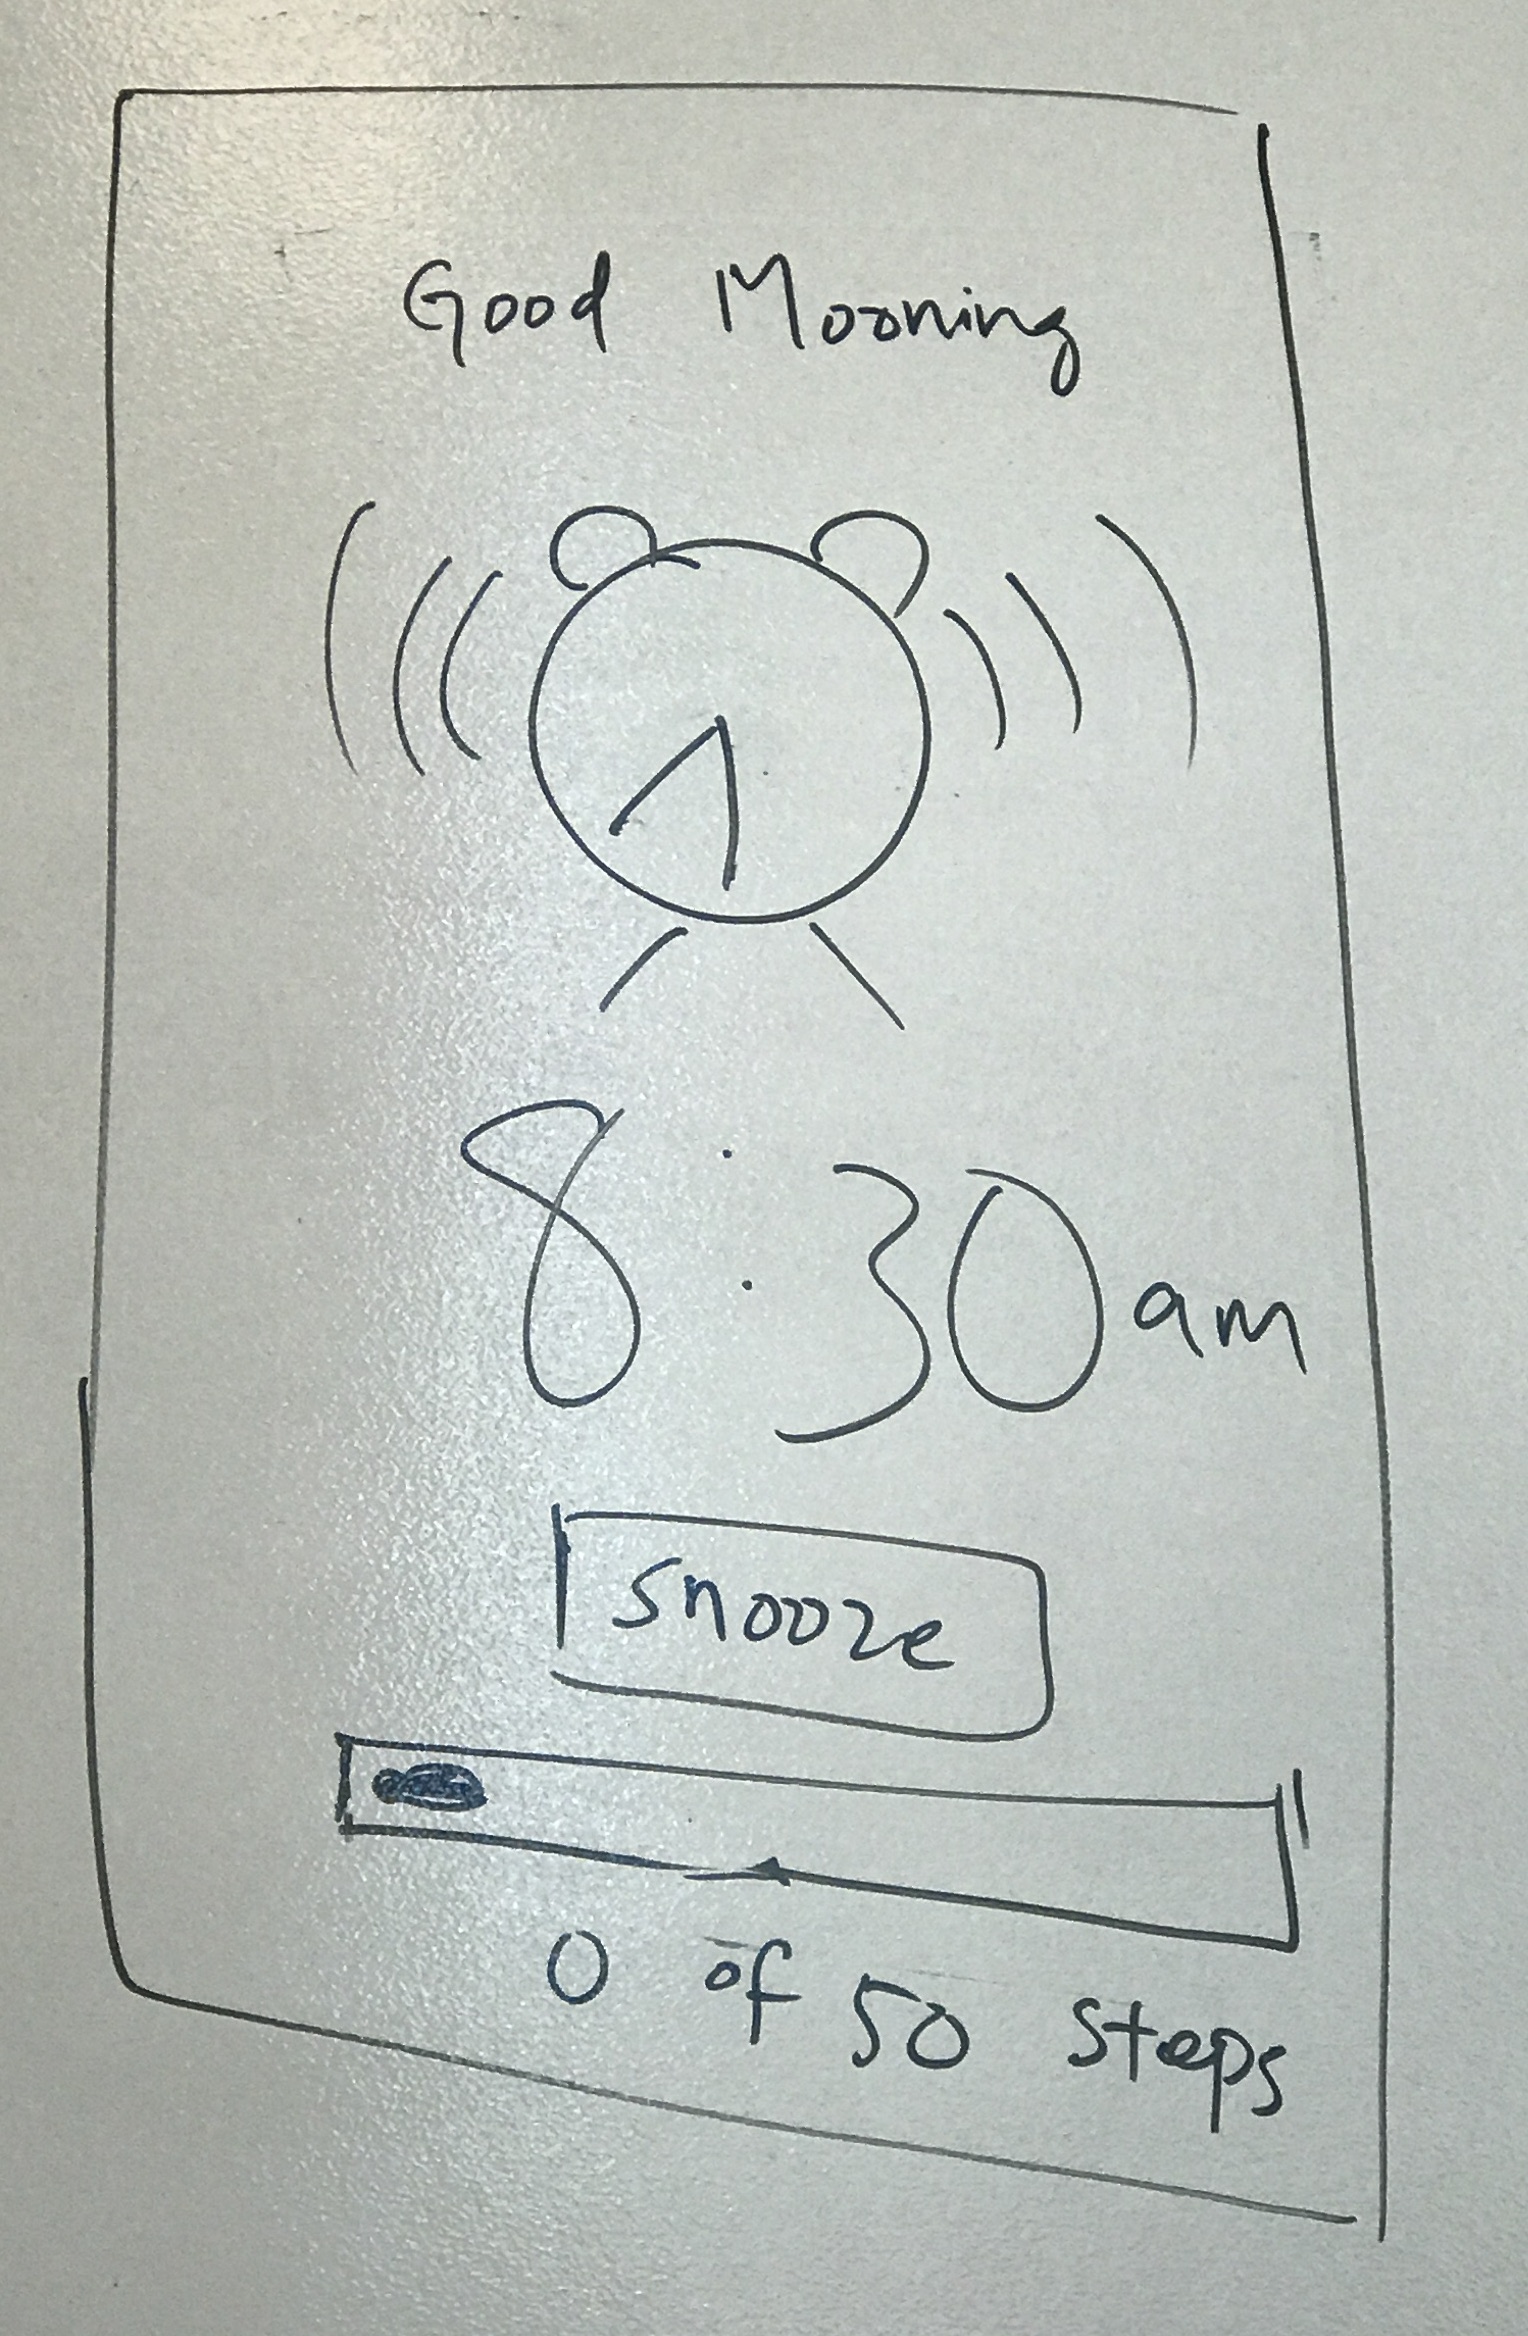 Good Morning
8:30am
snooze
0 of 50 steps